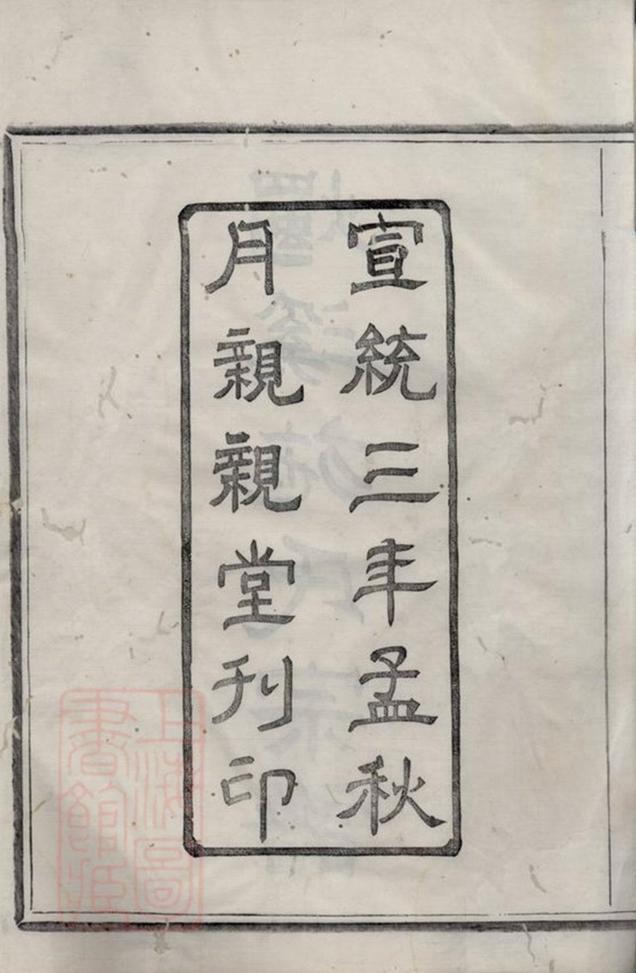 宣統三年孟秋
月親親堂刊印
上海圖
書館藏